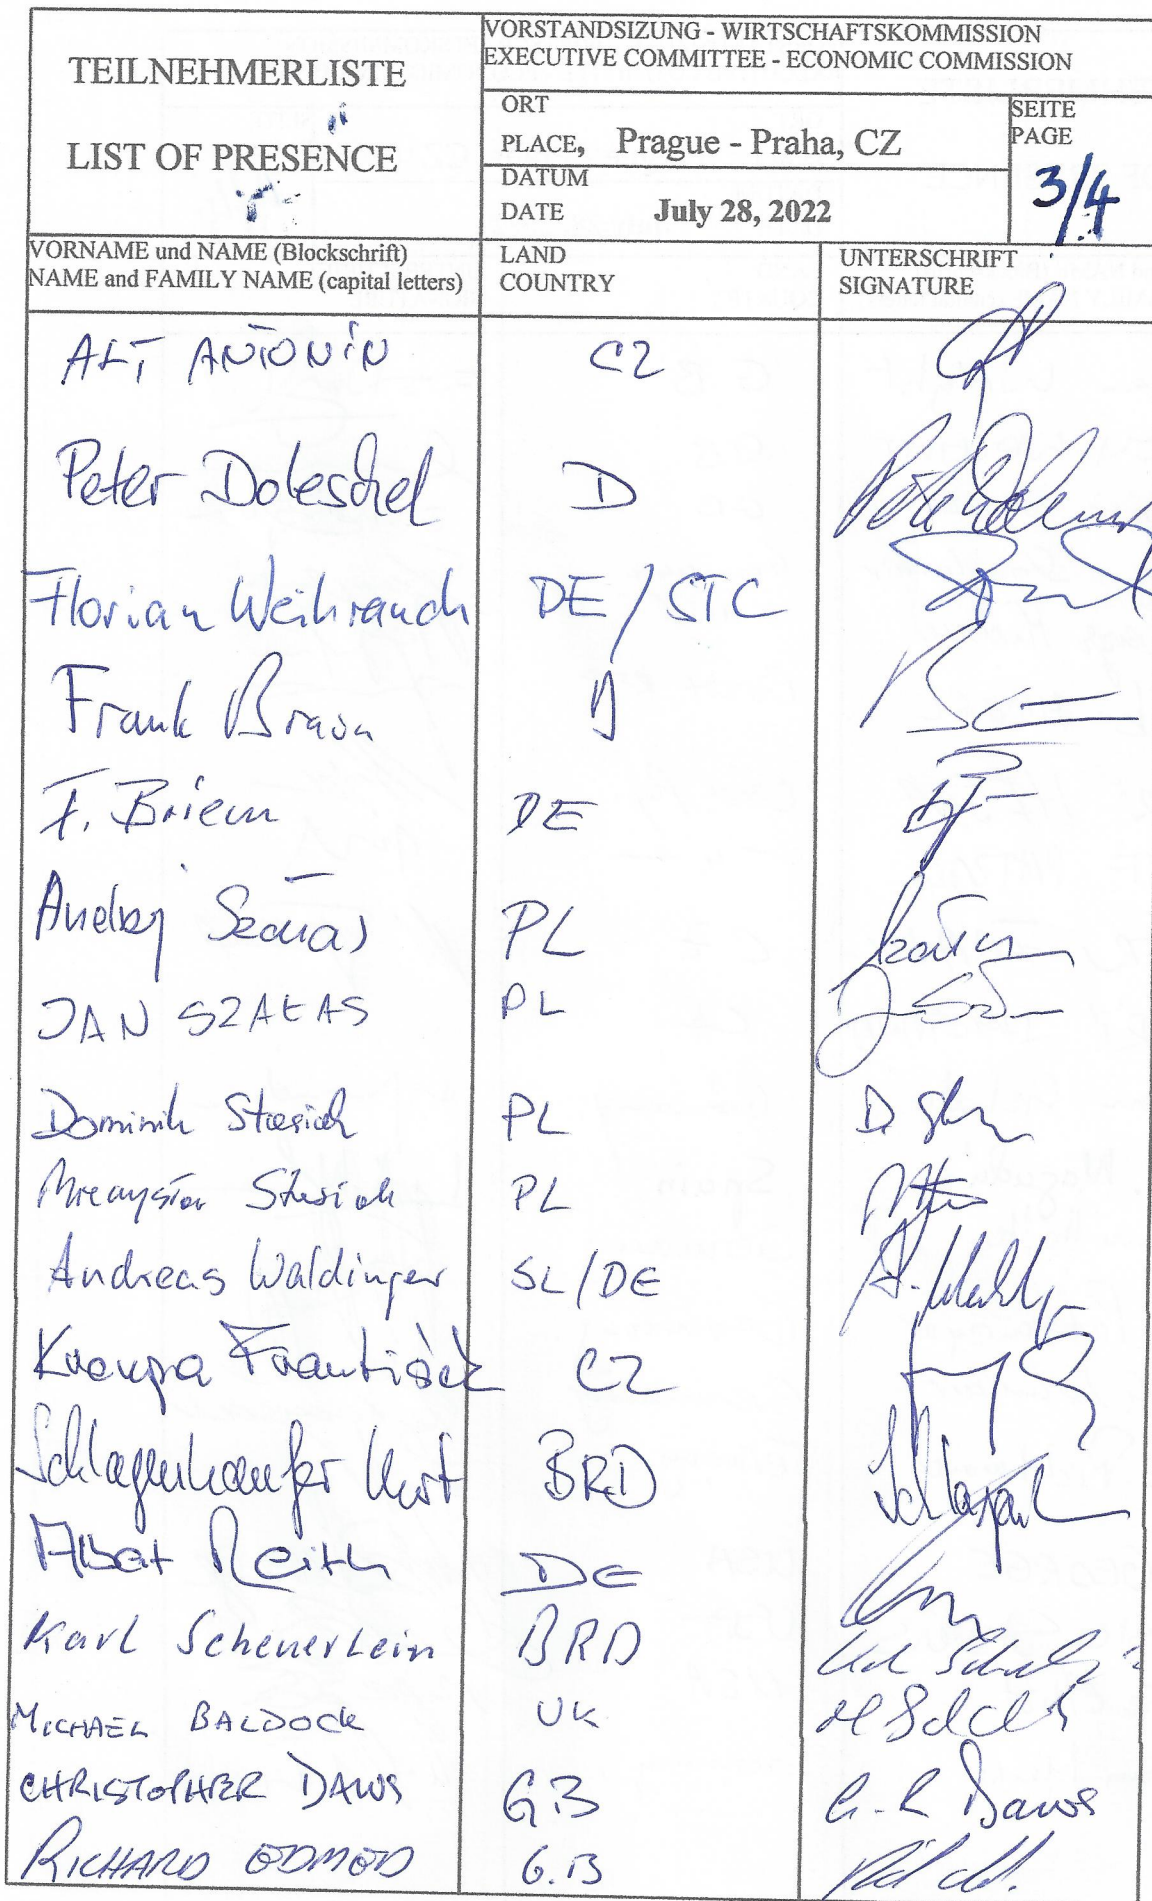 TEILNEHMERLISTE
LIST OF PRESENCE
VORSTANDSIZUNG - WIRTSCHAFTSKOMMISSION
EXECUTIVE COMMITTEE - ECONOMIC COMMISSION
ORT
PLACE, Prague - Praha, CZ
DATUM
DATE July 28, 2022
SEITE
PAGE
3/4
VORNAME und NAME (Blockschrift)
NAME and FAMILY NAME (capital letters)
LAND
COUNTRY
UNTERSCHRIFT
SIGNATURE
ALT ANTONÍN CZ
Peter Doleschel D
Florian Weihrauch DE / STC
Frank Braun D
F. Briem DE
PL
JAN SZAŁAS PL
Dominik Stasiak PL
Stasiak PL
Andreas Waldinger SL/DE
Kroupa František CZ
Schlagenhaufer Kurt BRD
Albert Reith DE
Karl Scheuerlein BRD
MICHAEL BALDOCK UK
CHRISTOPHER DAWS GB C-R Daws
RICHARD EDMED G.B